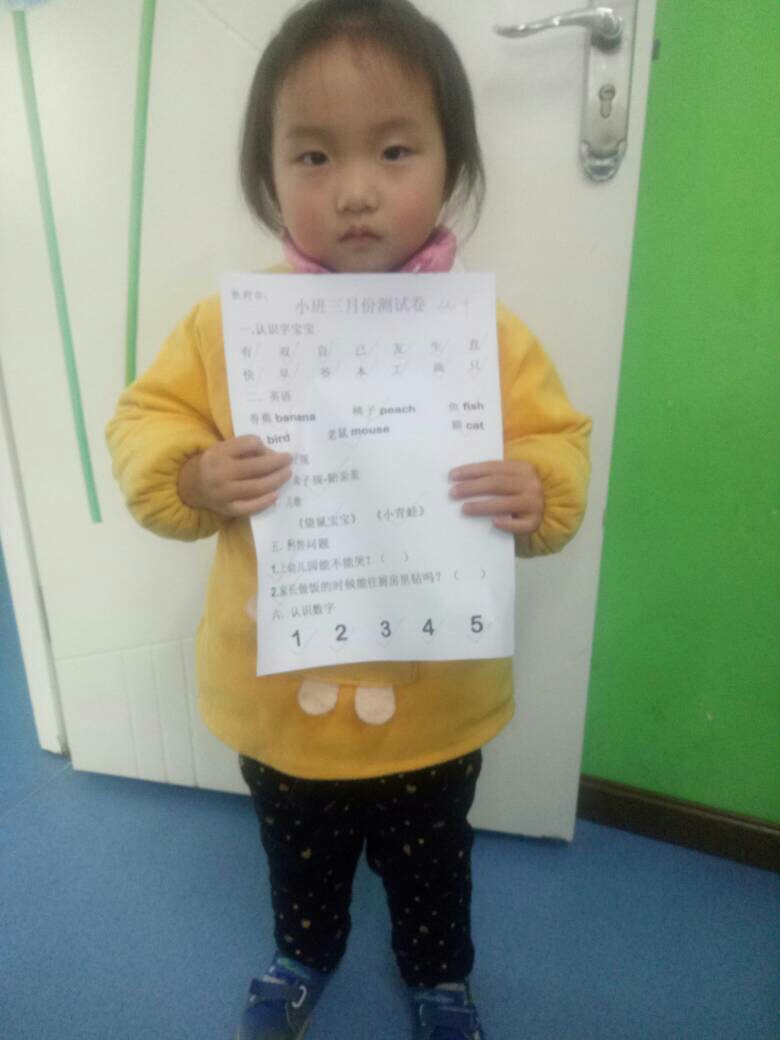 小班三月份测试卷
一.认识字宝宝
有 双 自 己 友 生 直
快 早 答 本 工 画 只
二、英语
香蕉 banana 桃子 peach 鱼 fish
bird 老鼠 mouse 猫 cat
《袋鼠宝宝》 《小青蛙》
五、回答问题
1.上幼儿园能不能哭？（ ）
2.家长做饭的时候能往厨房里钻吗？（ ）
六、认识数字
1 2 3 4 5